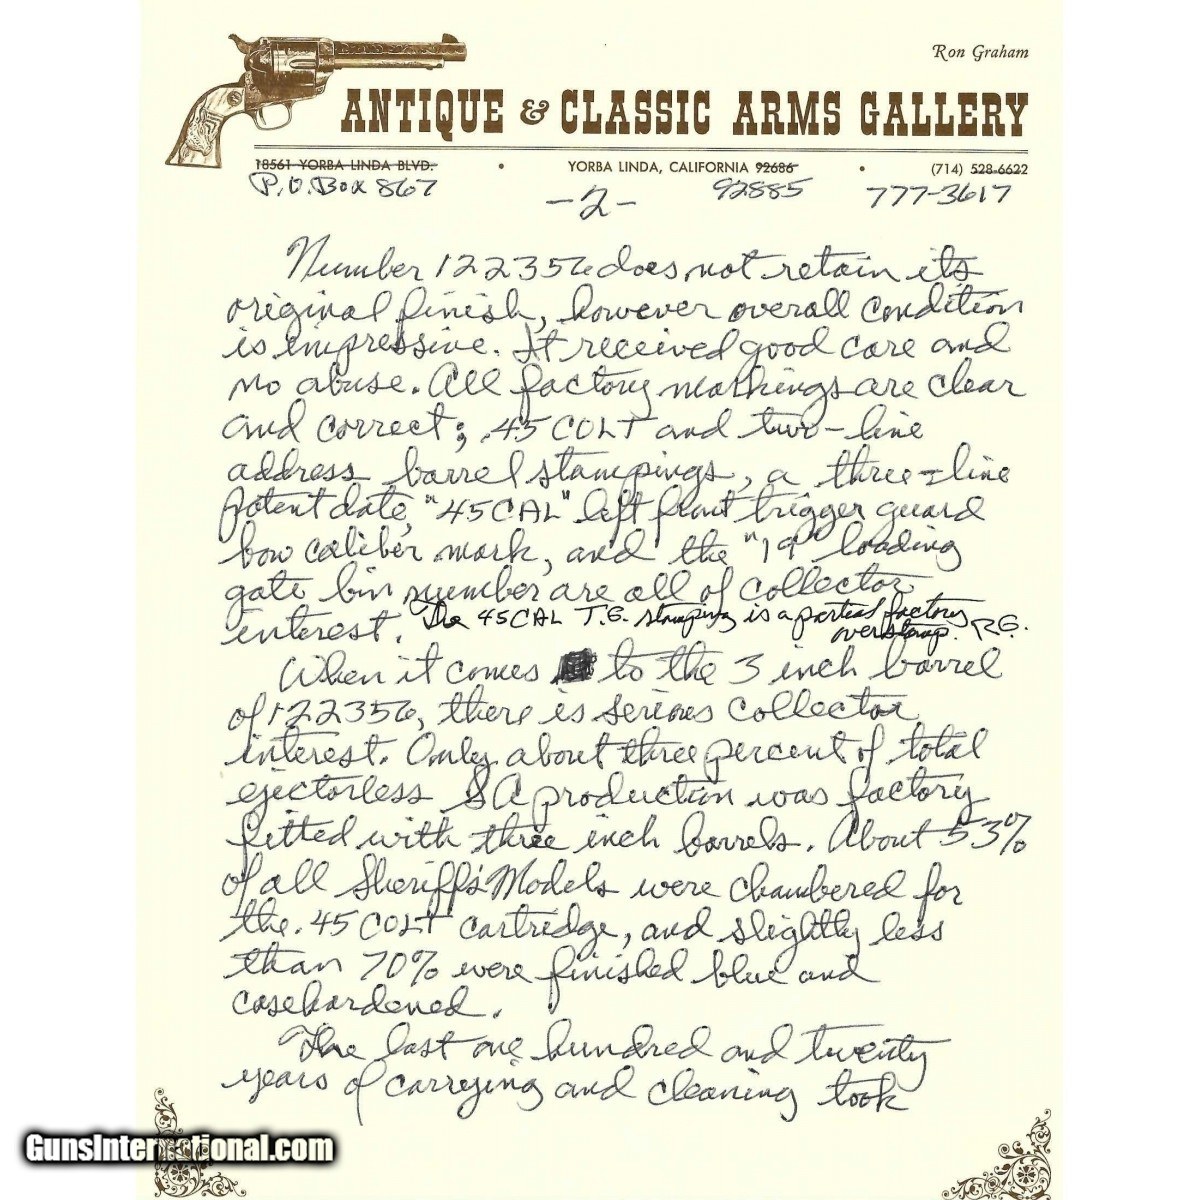 Ron Graham
ANTIQUE & CLASSIC ARMS GALLERY
18561 YORBA LINDA BLVD. • YORBA LINDA, CALIFORNIA 92686 • (714) 528-6622
P.O. Box 867 92885 777-3617
-2-
Number 122356 does not retain its
original finish, however overall condition
is impressive. It received good care and
no abuse. All factory markings are clear
and correct; .45 COLT and two-line
address barrel stampings, a three-line
patent date, "45 CAL" left front trigger guard
bow caliber mark, and the "19" loading
gate bin number are all of collector
interest. The 45 CAL T.G. stamping is a partial factory
overstamp. R.G.
When it comes to the 3 inch barrel
of 122356, there is serious collector
interest. Only about three percent of total
ejectorless SA production was factory
fitted with three inch barrels. About 53%
of all Sheriff's Models were chambered for
the .45 COLT cartridge, and slightly less
than 70% were finished blue and
casehardened.
The last one hundred and twenty
years of carrying and cleaning took
GunsInternational.com